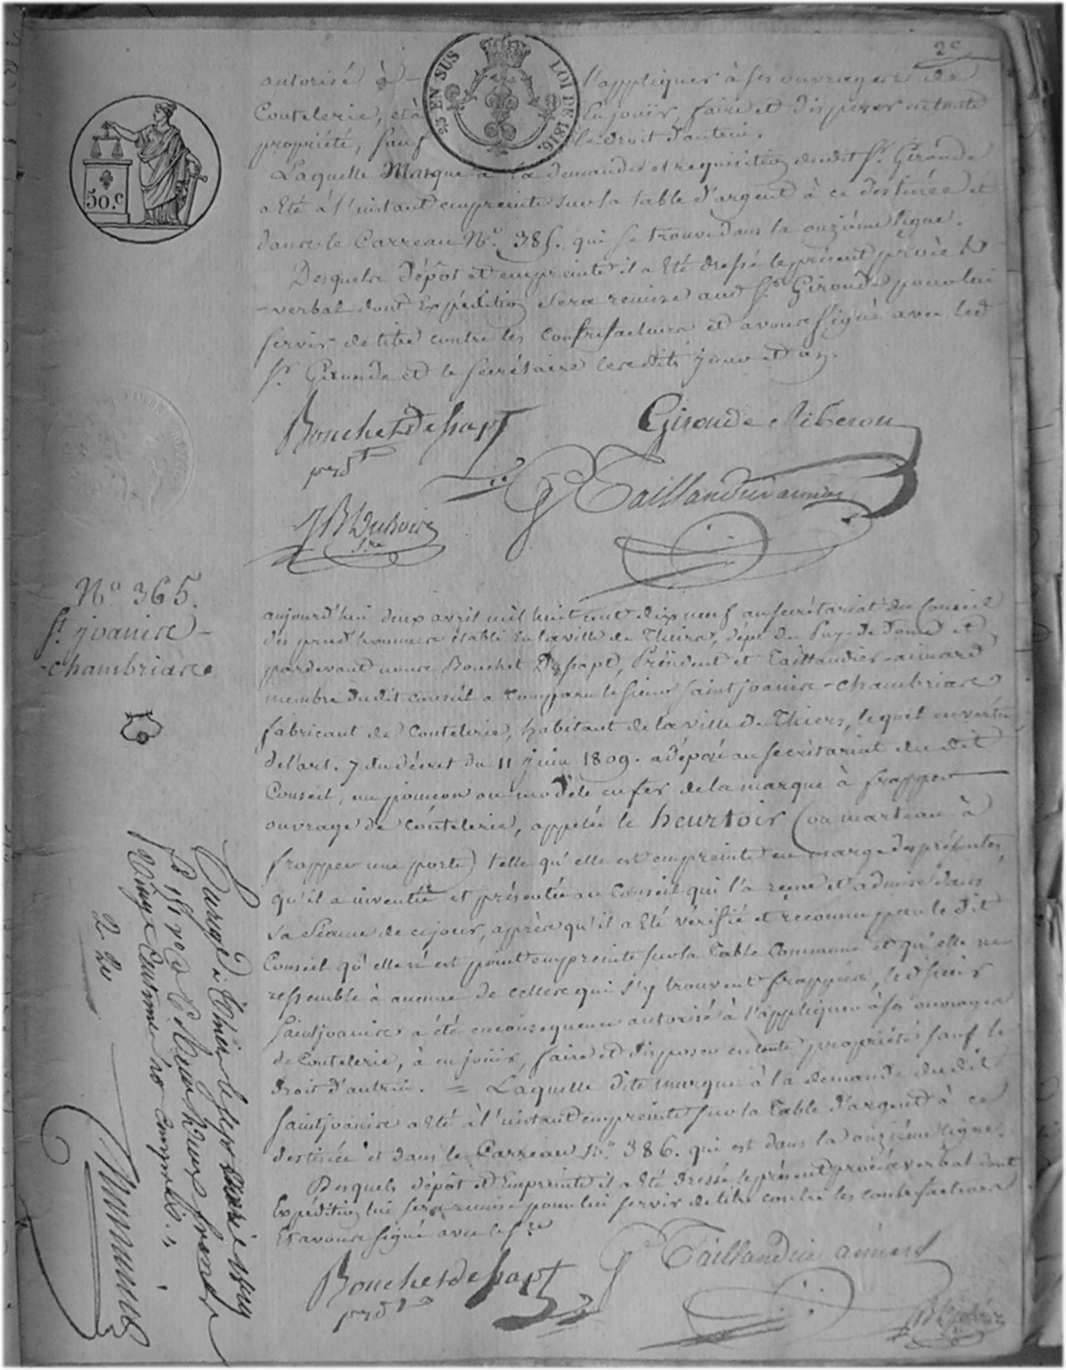 2e
25 EN SUS
LOI DE 1816.
50.c
autorisé à l'appliquer à ses ouvrages de
Coutelerie, et à En jouir, faire et disposer en toute
propriété, sauf le droit d'autrui.
Laquelle Marque à la demande et requisition dudit Sr. Gironde
a Eté à l'instant empreinte sur la table d'argent à ce destinée et
dans le Carreau No. 385. qui se trouve dans la onzième ligne.
Desquels dépôt et empreinte il a Eté dressé le présent procès
-verbal dont Expédition Sera remise aud Sr. Gironde pour lui
servir de titre contre les contrefacteurs et avons signé avec led
Sr. Gironde et le Secrétaire lesdits jour et an.
Bouchet Desapt
presdt
Gironde Riberon
G Taillandier aimard
JB Dubois
Sre
No. 365.
St. joanis-
-chambriard
aujourd'hui deux avril mil huit cent dix neuf au secrétariat du Conseil
des prud'hommes établi en la ville de Thiers, dépt. du Puy-de-Dome et
pardevant nous Bouchet Desapt, Président et Taillandier-aimard
membre dudit conseil a Comparu le sieur Saint joanis-chambriard
fabricant de Coutelerie, habitant de la ville de Thiers, lequel en vertu
de l'art. 7 du décret du 11 juin 1809. a déposé au secrétariat dudit
Conseil, un poinçon ou modèle en fer de la marque à frapper
ouvrage de coutelerie, appelée le heurtoir (ou marteau à
frapper une porte) telle qu'elle est empreinte en marge des présentes
qu'il a inventée et présentée au Conseil qui l'a reçue et admise dans
Sa Séance de ce jour, après qu'il a Eté vérifié et reconnu par le dit
Conseil qu'elle n'est point empreinte sur la Table Commune et qu'elle ne
ressemble à aucune de celles qui s'y trouvent frappées, led sieur
Saint joanis a été en conséquence autorisé à l'appliquer à ses ouvrages
de Coutelerie, à en jouir, faire et disposer en toute propriété sauf le
droit d'autrui. = Laquelle dite marque à la demande dudit
Saint joanis a Eté à l'instant empreinte sur la Table d'argent à ce
destinée et dans le Carreau No. 386. qui est dans la onzième ligne.
Desquels dépôt et Empreinte il a Eté dressé le présent procès verbal dont
Expédition lui sera remise pour lui servir de titre contre les contrefacteurs
Et avons signé avec le Sre
Bouchet Desapt
presdt
G Taillandier aimard
JB Dubois
2 20